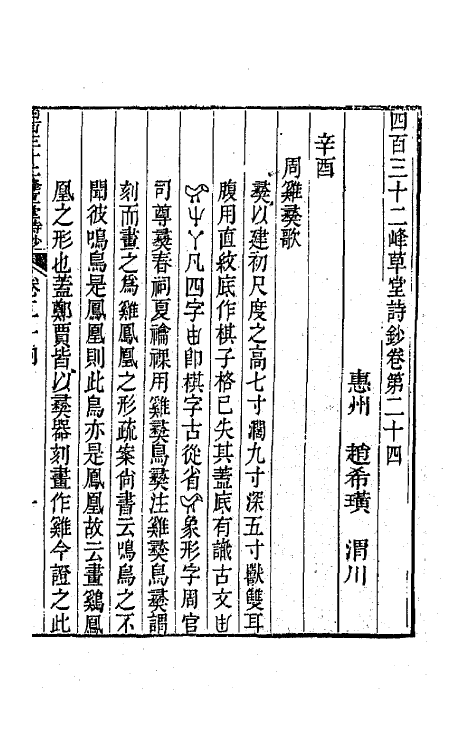 四百三十二峰草堂詩鈔卷第二十四
惠州　趙希璜　渭川
辛酉
周雞彝歌
彝以建初尺度之高七寸濶九寸深五寸獸雙耳
腹用直紋底作棋子格已失其蓋底有識古文
凡四字由卽棋字古從省象形字周官
司尊彝春祠夏禴祼用雞彝鳥彝注雞彝鳥彝謂
刻而畫之爲雞鳳凰之形疏案尙書云鳴鳥之不
聞彼鳴鳥是鳳凰則此鳥亦是鳳凰故云畫雞鳳
凰之形也蓋鄭賈皆以彝器刻畫作雞今證之此